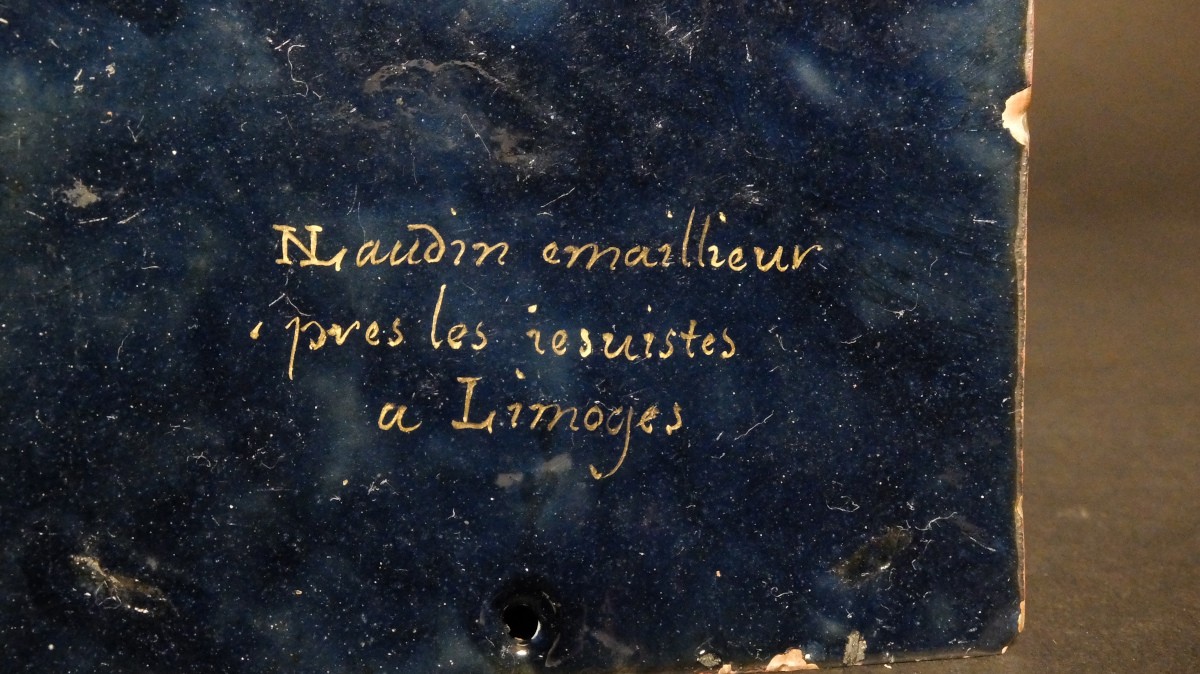 NLaudin emaillieur
pres les iesuistes
a Limoges